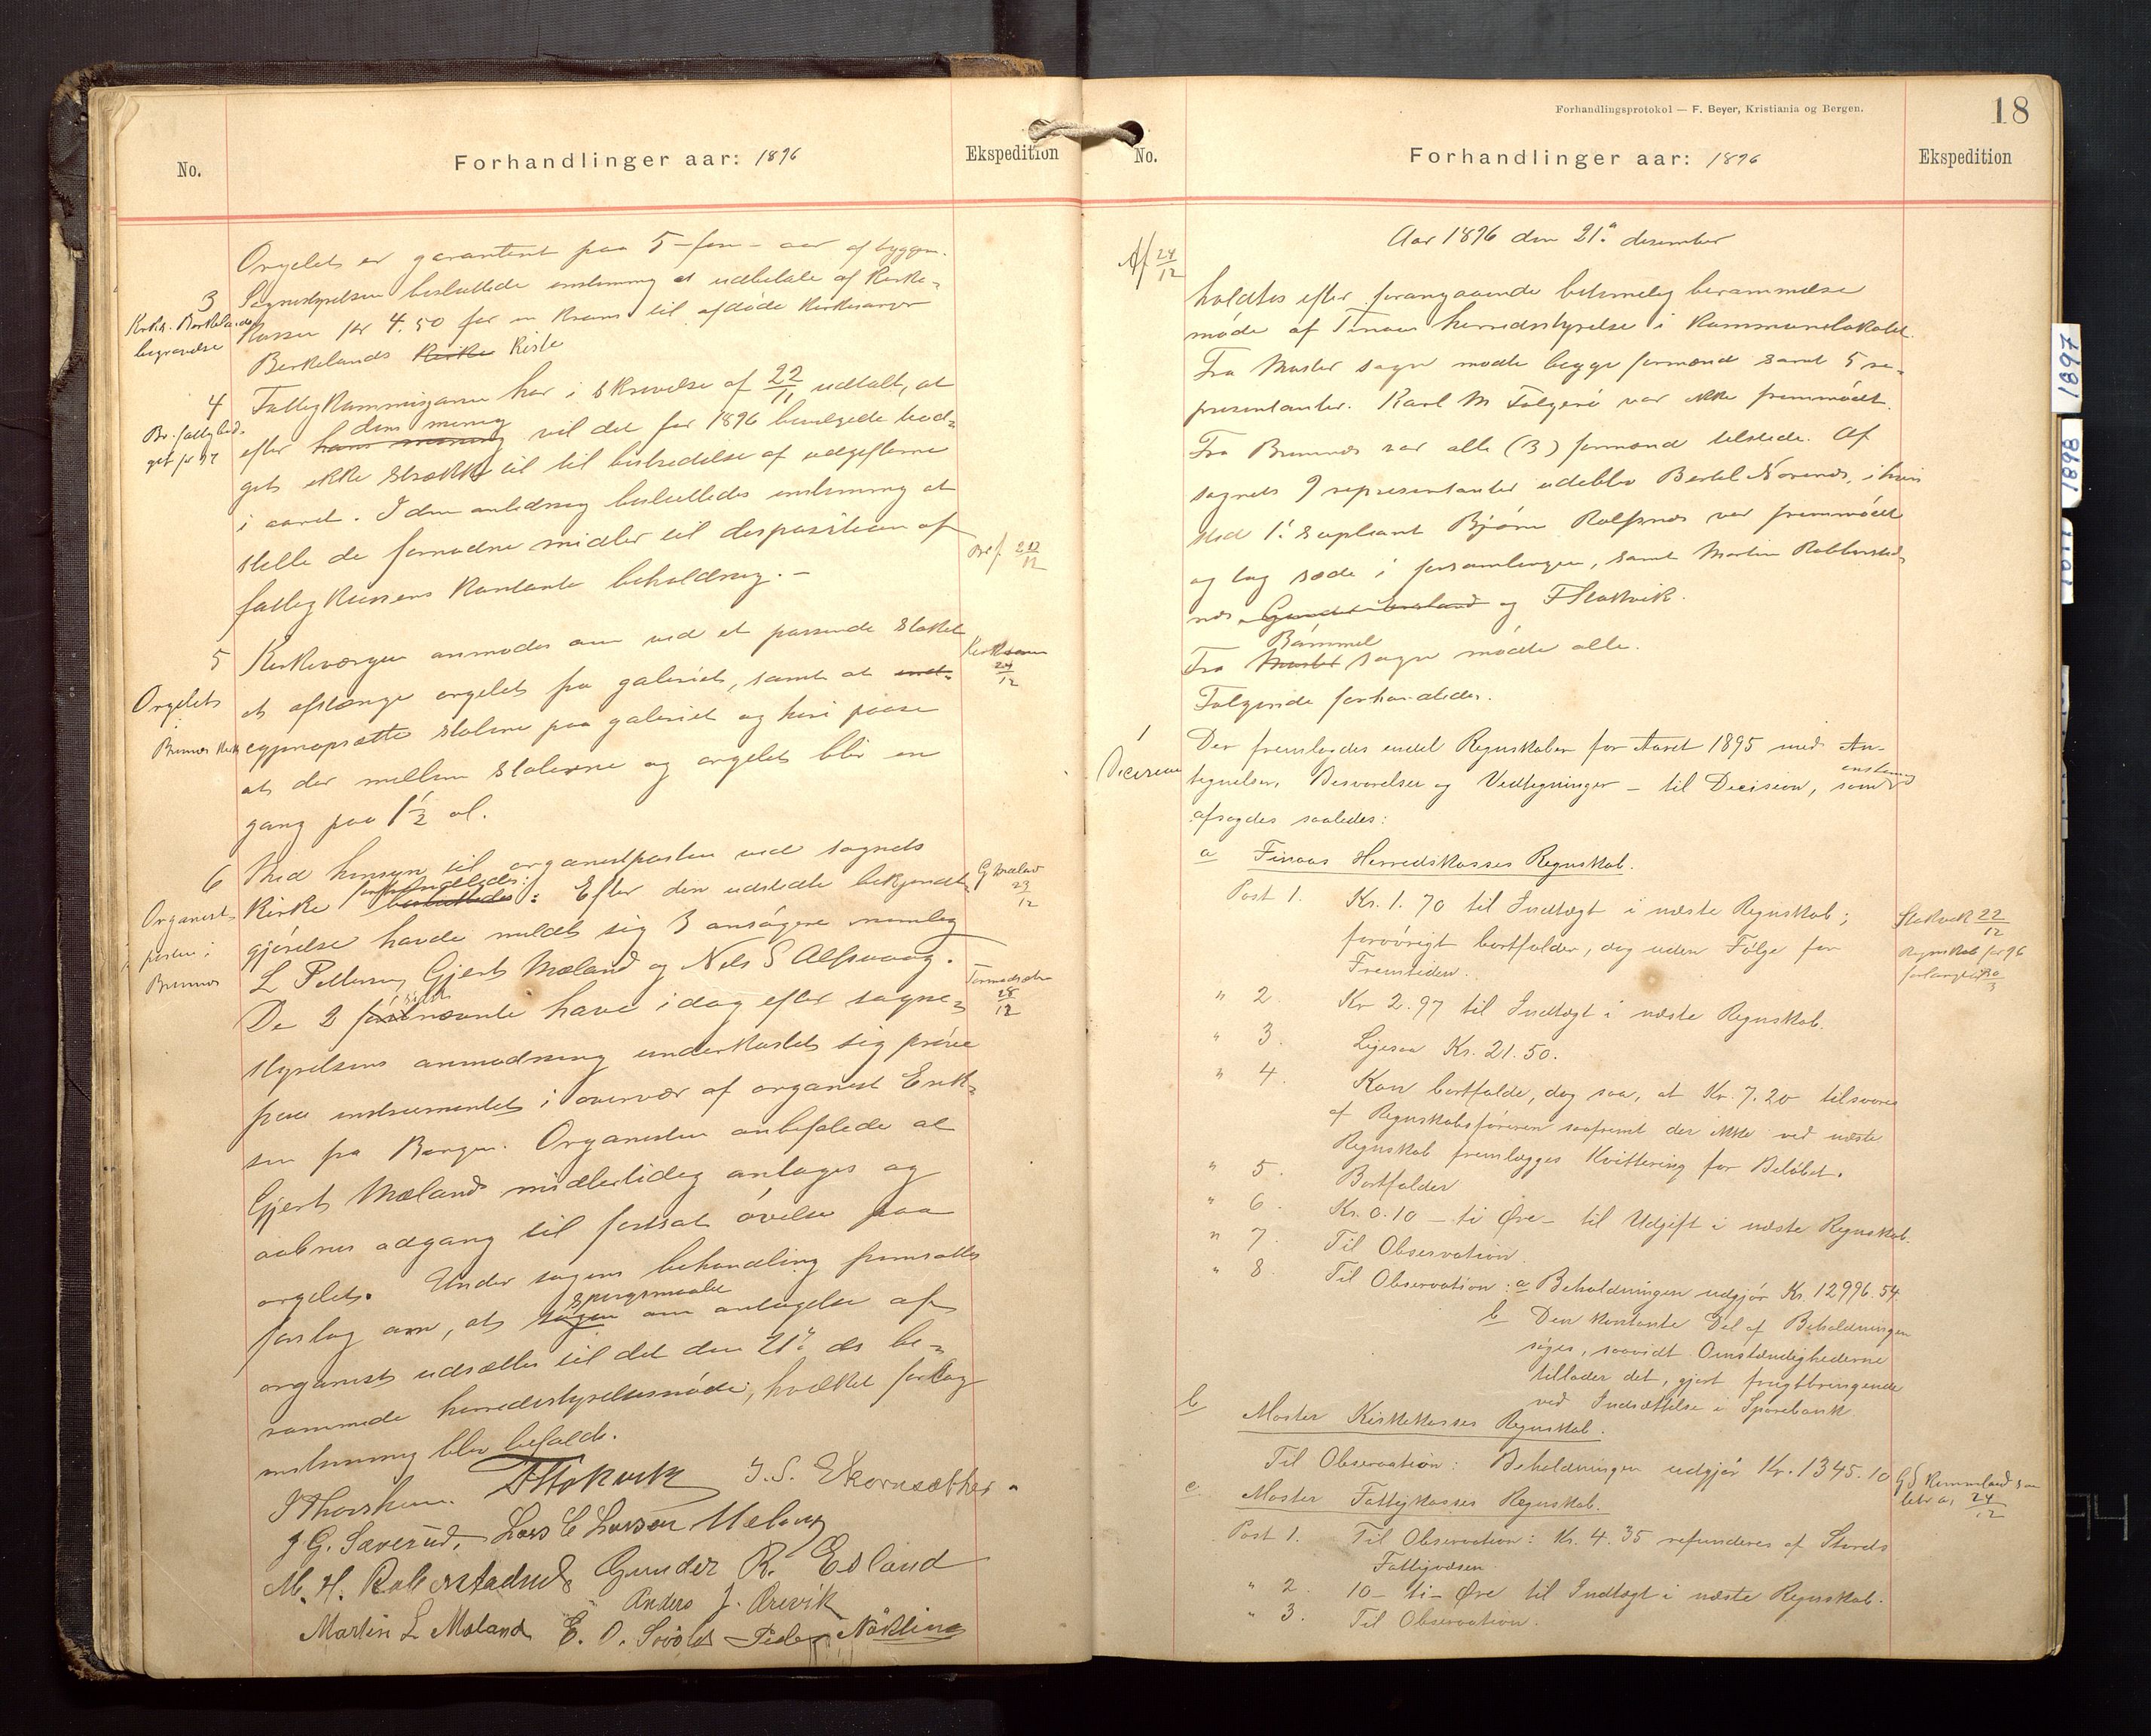 No.
Forhandlinger aar: 1896
Ekspedition
Orgelet er garanteret paa 5 – fem – aar af byggm.
3 Sognestyrelsen besluttede enstemmig at udbetale af Kirke-
Kirkes. Berkelands begravelse
kassen kr 4.50 for en krans til afdøde kirkesanger
Berkelands Kirke Kiste
4 Fattigkommisjonen har i skrivelse af 22/11 udtalt, at
Br. fattigbud-
get for 97
efter hans mening dens mening vil det for 1896 bevilgede bud-
get ikke strække til til bestridelse af udgifterne
i aaret. I den anledning besluttedes enstemmig at
stille de fornødne midler til desposition af
fattigkassens kontante beholdning. –
Bref 22/12
5 Kirkeværgen anmodes om ved et passende stakit
Orgelet
i
Bremnes Kirke
at afstænge orgelet fra galeriet, samt at
igjenopsætte stolene paa galeriet og heri passe
at der mellem stolerne og orgelet blir en
gang paa 1 1/2 al.
24/12
6 Med hensyn til organistposten ved sognets
Organist-
posten i
Bremnes
kirke besluttedes: forhandledes: Efter den udstedte bekjendt-
G Mæland
23/12
gjørelse havde meldt sig 3 ansøgere nemlig
L Pettersen, Gjert Mæland og Nels S Alfsvaag.
De 2 først sidst nævnte have idag efter sogne-
28/12
styrelsens anmodning underkastet sig prøve
paa instrumentet i overvær af organist Erik-
sen fra Bergen. Organisten anbefalede at
Gjert Mæland midlertidig antages og
aabnes adgang til fortsat øvelse paa
orgelet. Under sagens behandling fremsattes
forslag om, at sagen spørgsmaalet om antagelse af
organist udsættes til det den 21de ds be-
rammede herredsstyrelsesmøde, hvilket forslag
enstemmig blev befalet.
J Thorsheim. F Stokvik J. S. Ekornsæther.
J G. Sæverud, Lars C Larsen Meland
M. H. Rabberstadnes Gunder R. Esland
Anders J. Ørevik
Martin L Meland E. O. Sørold Peder Nökling
Forhandlingsprotokol — F. Beyer, Kristiania og Bergen.
18
No.
Forhandlinger aar: 1896
Ekspedition
Af 24/12
Aar 1896 den 21de desember
holdtes efter forangaaende betimelig berammelse
møde af Finaas herredsstyrelse i kommunelokalet.
Fra Moster sogn mødte begge formænd samt 5 re-
presentanter. Karl M Folgerø var ikke fremmødt.
Fra Bremnes var alle (3) formænd tilstede. Af
sognets 9 representanter udeblev Bertel Norenes, i hvis
sted 1ste supleant Bjørn Rolfsnes var fremmødt
og tog sæde i forsamlingen, samt Martin Rabberstad-
nes Gunder Esland og F Stokvik.
Fra Moster Bømmel sogn mødte alle.
Følgende forhandledes.
1
Decision
Der fremlagdes endel Regnskaber for Aaret 1895 med An-
tegnelser, Besvarelser og Vedtegninger – til Decision, som enstemmig
afsagdes saaledes:
a Finaas Herredskasses Regnskab.
Post 1. Kr. 1.70 til Indtægt i næste Regnskab;
forøvrigt bortfalder, dog uden Følge for
Fremtiden.
Stokvik 22/12
Regnskab for 96
forlangt 30/3
" 2 Kr 2.97 til Indtægt i næste Regnskab.
" 3. Ligesaa Kr. 21.50.
" 4. Kan bortfalde, dog saa, at Kr. 7.20 tilsvares
af Regnskabsføreren saafremt der ikke ved næste
Regnskab fremlægges Kvittering for Beløbet.
" 5. Bortfalder
" 6. Kr. 0.10 – ti Øre – til Udgift i næste Regnskab.
" 7. Til Observation.
" 8. Til Observation: a Beholdningen udgjør Kr. 12996.54
b Den kontante Del af Beholdningen
søges, saavidt Omstændighederne
tillader det, gjort frugtbringende
ved Indsættelse i Sparebank
b Moster Kirkekasses Regnskab.
Til Observation: Beholdningen udgjør Kr. 1345.10
c. Moster Fattigkasses Regnskab.
24/12
Post 1. Til Observation: Kr. 4.35 refunderes af Stords
Fattigvæsen.
" 2. 10 – ti – Øre til Indtægt i næste Regnskab.
" 3. Til Observation.
1897
1898